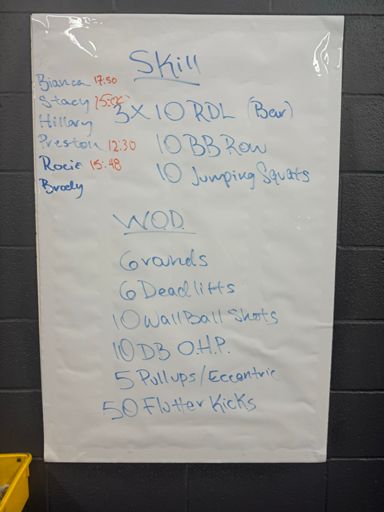 Skill
Bianca 17:50
Stacy 15:00
Hillary
Preston 12:30
Rocie 15:48
Brody
3X10 RDL (Bar)
10 BB Row
10 Jumping Squats
WOD
6 rounds
6 Deadlifts
10 Wall Ball Shots
10 DB O.H.P.
5 Pullups/Eccentric
50 Flutter Kicks